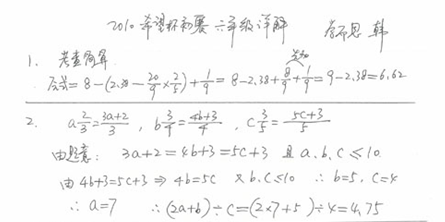 2010 希望杯初赛 六年级详解
1. 考查简算
原式=8-(2.38-20/9×2/5)+1/9=8-2.38+8/9+1/9=9-2.38=6.62
2. a2/3=3a+2/3, b3/4=4b+3/4, c3/5=5c+3/5
由题意: 3a+2=4b+3=5c+3 且a.b.c≤10.
由4b+3=5c+3⇒4b=5c 又b.c≤10 ∴b=5, c=4
∴a=7 ∴(2a+b)÷c=(2×7+5)÷4=4.75